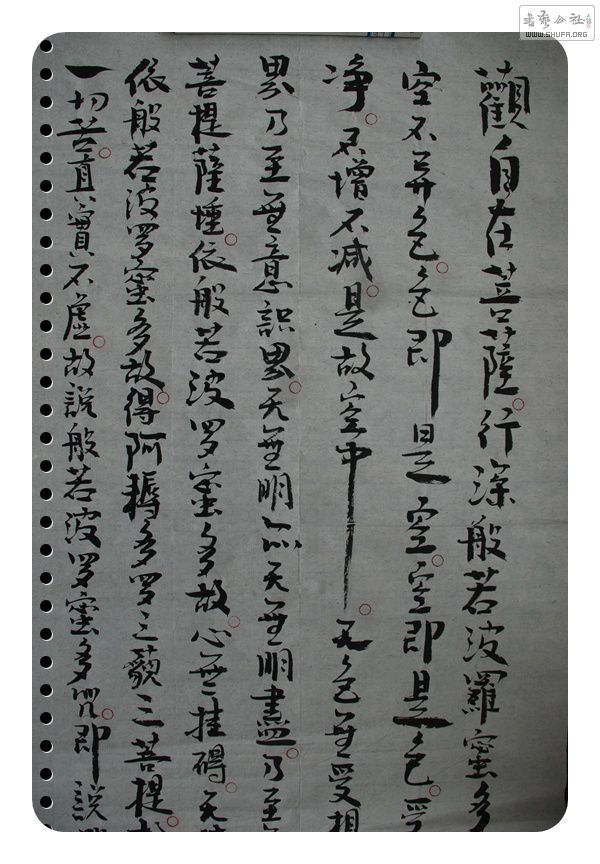 書藝公社
WWW.SHUFA.ORG
觀自在菩薩行深般若波羅蜜多
空不异色色即是空空即是色受
净不增不减是故空中无色無受想
界乃至無意識界无無明亦无無明盡乃至
菩提薩埵依般若波罗蜜多故心無挂碍无
依般若波罗蜜多故得阿耨多罗三藐三菩提
一切苦真實不虚故説般若波罗蜜多咒即説